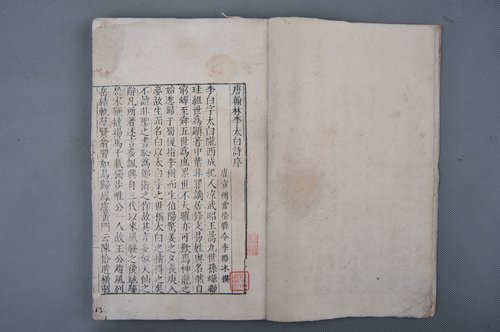 唐翰林李太白詩序
唐宣州當塗縣令李陽冰撰
李白字太白隴西成紀人涼武昭王暠九世孫蟬聯
珪組世為顯著中葉非罪謫居條支易姓與名然自
窮蟬至舜五世為庶累世不大曜亦可歎焉神龍之
始逃歸于蜀復指李樹而生伯陽驚姜之夕長庚入
夢故生而名白以太白字之世稱太白之精得之矣
不讀非聖之書恥為鄭衛之作故其言多似天仙之
辭凡所著述言多諷興自三代以來風騷之後馳驅
屈宋鞭撻揚馬千載獨步唯公一人故王公趨風列
岳結軌群賢翕習如鳥歸鳳盧黃門云陳拾遺橫制